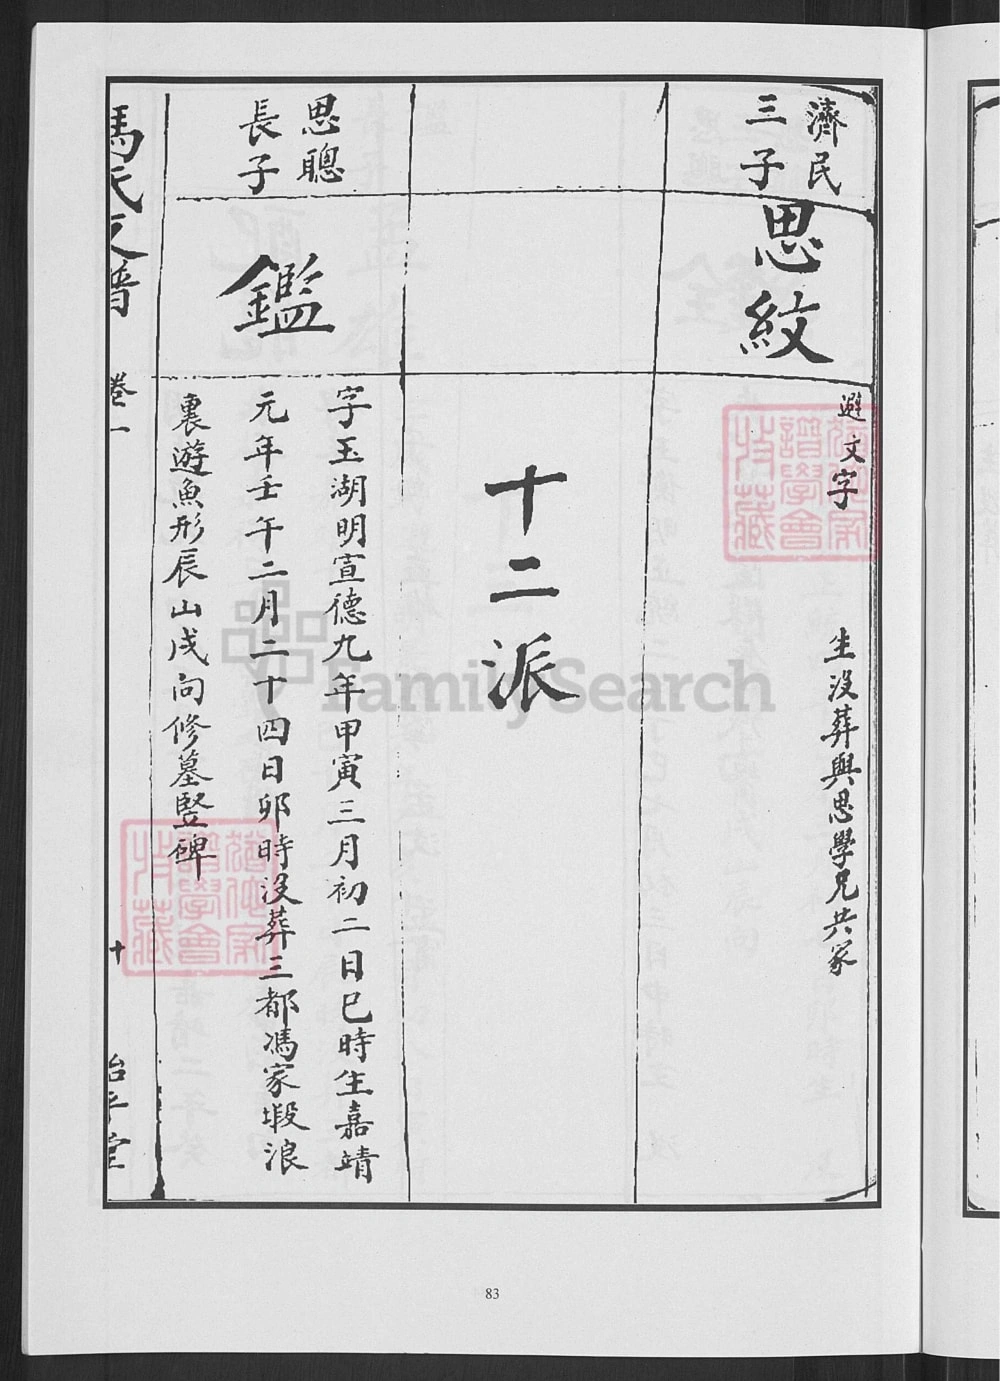 濟民
三子
思紋
避文字
生沒葬與思學兄共冢
十二派
思聰
長子
鑑
字玉湖明宣德九年甲寅三月初二日巳時生嘉靖
元年壬午二月二十四日卯時沒葬三都馮家塅浪
裏遊魚形辰山戌向修墓豎碑
馮氏支譜
卷一
十
治平堂
譜學會
收藏
FamilySearch
83